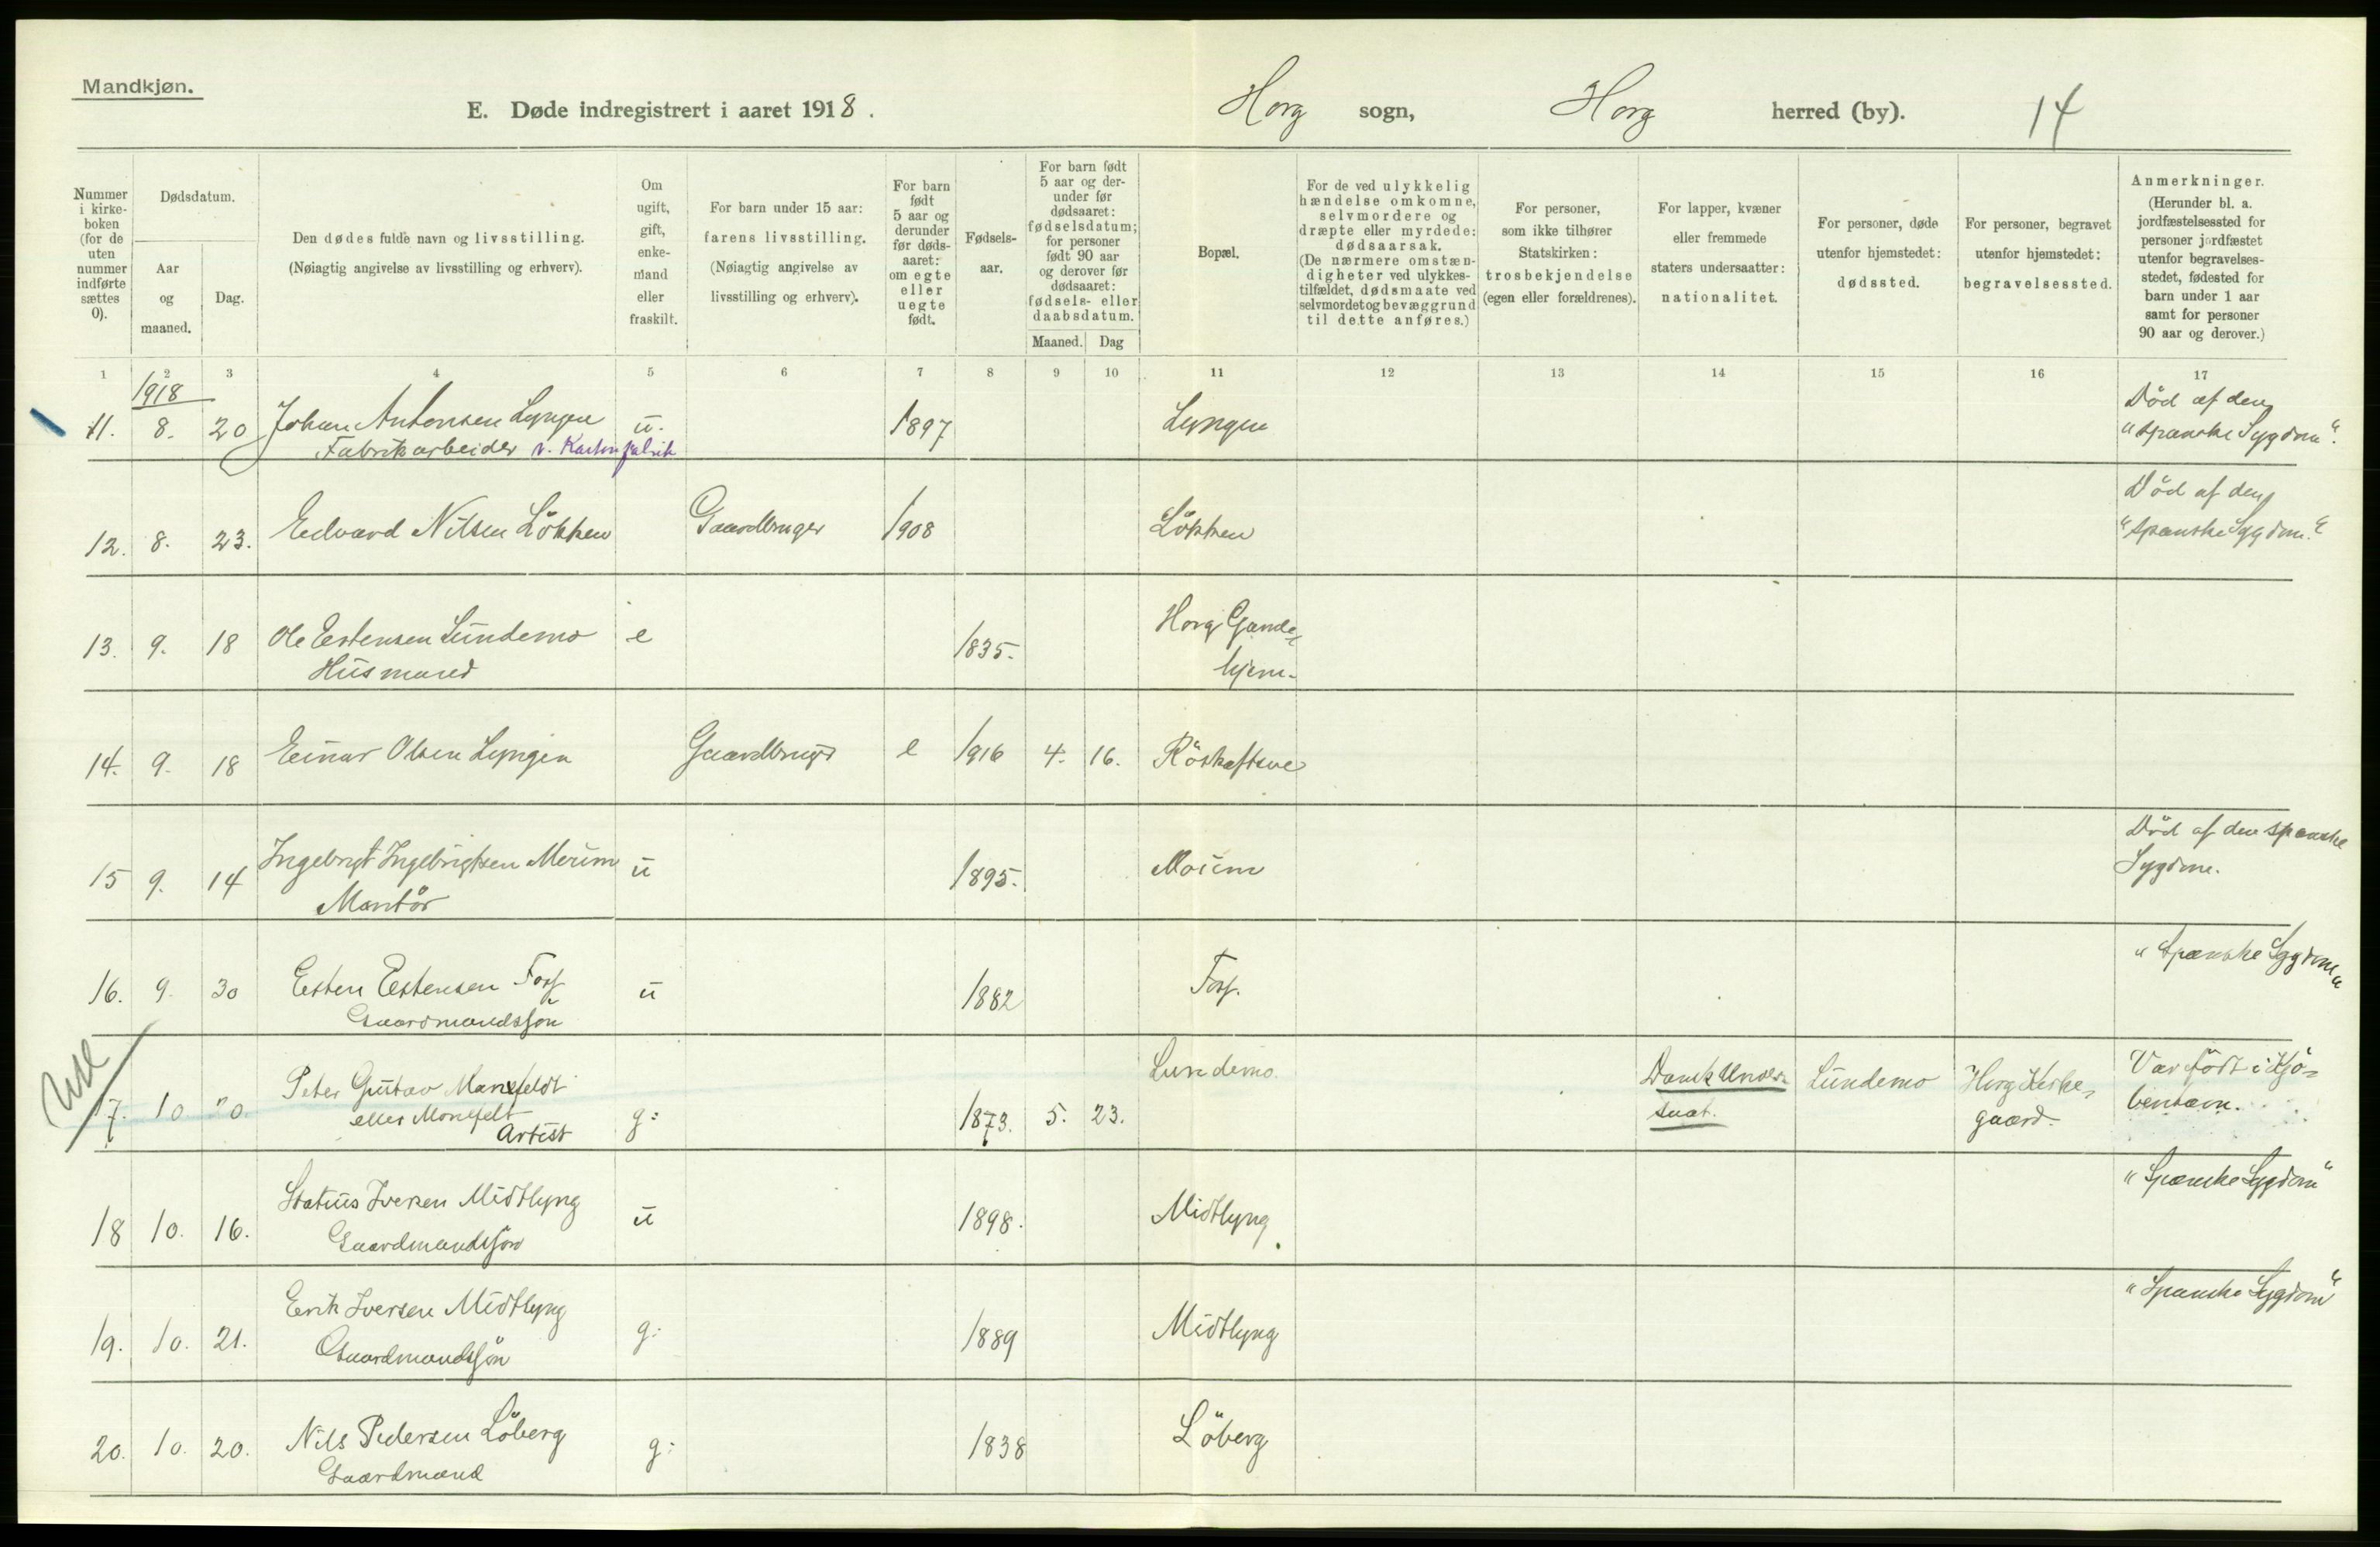 Mandkjøn.
E. Døde indregistrert i aaret 1918.
Horg sogn, Horg herred (by). 14
Nummer i kirkeboken (for de uten nummer indførte sættes 0).
Dødsdatum.
Aar og maaned.
Dag.
Den dødes fulde navn og livsstilling.
(Nøiagtig angivelse av livsstilling og erhverv).
Om ugift, gift, enkemand eller fraskilt.
For barn under 15 aar: farens livsstilling.
(Nøiagtig angivelse av livsstilling og erhverv).
For barn født 5 aar og derunder før dødsaaret: om egte eller uegte født.
Fødselsaar.
For barn født 5 aar og derunder før dødsaaret: fødselsdatum; for personer født 90 aar og derover før dødsaaret: fødsels- eller daabsdatum.
Maaned. Dag
Bopæl.
For de ved ulykkelig hændelse omkomne, selvmordere og dræpte eller myrdede: dødsaarsak.
(De nærmere omstændigheter ved ulykkestilfældet, dødsmaate ved selvmord og bevæggrund til dette anføres.)
For personer, som ikke tilhører Statskirken: trosbekjendelse (egen eller forældrenes).
For lapper, kvæner eller fremmede staters undersaatter: nationalitet.
For personer, døde utenfor hjemstedet: dødssted.
For personer, begravet utenfor hjemstedet: begravelsessted.
Anmerkninger.
(Herunder bl. a. jordfæstelsessted for personer jordfæstet utenfor begravelsesstedet, fødested for barn under 1 aar samt for personer 90 aar og derover.)
1 2 3 4 5 6 7 8 9 10 11 12 13 14 15 16 17
1918
11. 8. 20 Johan Antonsen Lyngen u. 1897 Lyngen Död af den
Fabrikarbeider v. Kartonfabrik "spanske Sygdom".
12. 8. 23. Edvard Nilsen Lökken Gaardbruger 1908 Lökken Död af den
"spanske Sygdom."
13. 9. 18 Ole Estensen Lundemo e 1835. Horg Gamle-
Husmand hjem.
14. 9. 18 Einar Olsen Lyngen Gaardbruger e 1916 4. 16. Röskaftsve
15 9. 14 Ingebrigt Ingebrigtsen Moum u 1895. Moum Död af den spanske
Montör Sygdom.
16. 9. 30 Esten Estensen Foss u 1882 Foss. "Spanske Sygdom"
Gaardmandssön
17. 10 20 Peter Gustav Manefeldt Lundemo. Dansk Under- Lundemo Horg Kirke- Var født i Kjö-
eller Monefelt g: 1873. 5. 23. saat. gaard. benhavn.
Artist
18 10. 16. Statius Iversen Midtlyng u 1898. Midtlyng "Spanske Sygdom"
Gaardmandssön
19. 10. 21. Erik Iversen Midtlyng g: 1889 Midtlyng "Spanske Sygdom"
Gaardmandssön
20. 10. 20. Nils Pedersen Löberg g: 1838 Löberg
Gaardmand